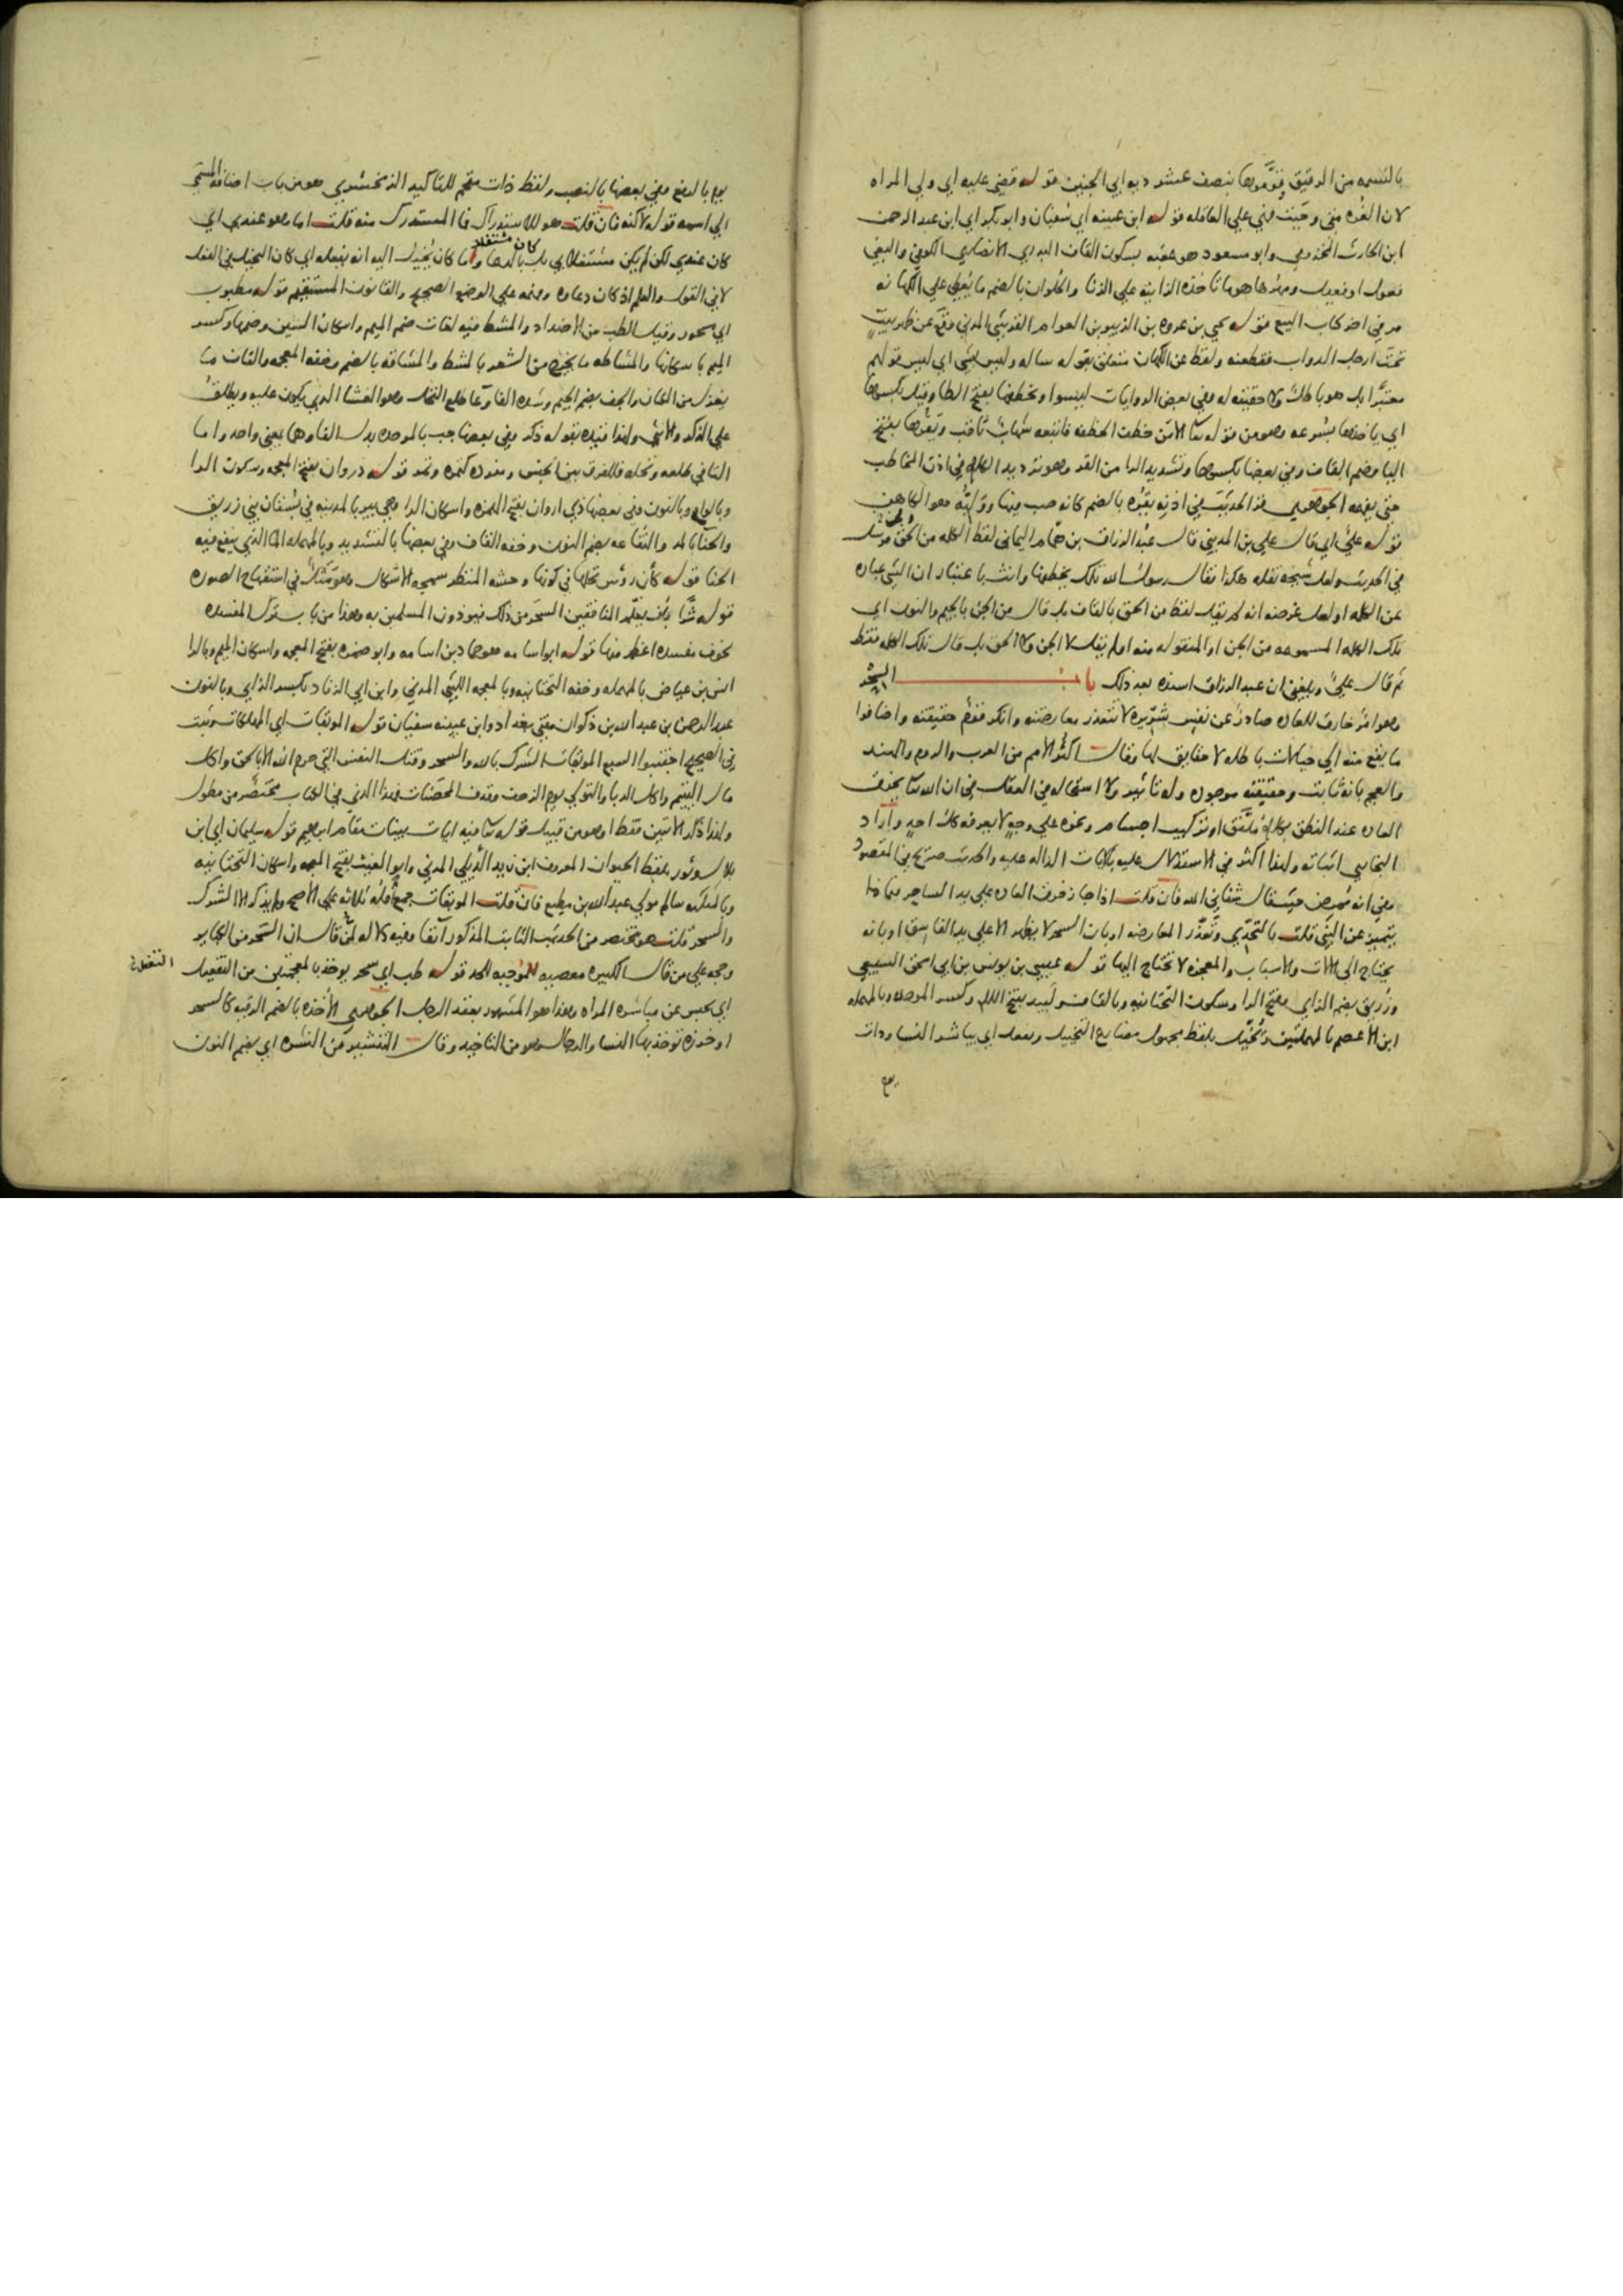 بالقسمه من الرقيق قوموها بنصف عشر ديه ابي الجنين قوله قضي عليه اي ولي المراه
لان الغره متي وجبت فهي علي العاقله قوله ابن عيينه اي سفيان وابوبكر اي ابن عبد الرحمن
ابن الحارث المخزومي وابو مسعود هو عقبه بسكون القاف البدري الانصاري الكوفي والبغي
فعول او فعيل ومهرها هو ما تاخذه الزانيه علي الزنا والحلوان بالضم ما يعطي علي الكهانه
مر في اخر كتاب البيع قوله يحيي بن عروه بن الزبير بن العوام القرشي المدني وقع عن ظهر بيت
تحت ارجل الدواب فقطعنه ولفظ عن الكهان متعلق بقوله ساله وليس بشي اي ليس قولهم
معتبرا بل هو باطل ولا حقيقه له وفي بعض الروايات ليسوا ويخطفها بفتح الطا وقيل بكسرها
اي ياخذها بسرعه وهو من قوله تعا الا من خطف الخطفه فاتبعه شهاب ثاقب ويقرها بفتح
اليا وضم القاف وفي بعضها بكسرها وتشديد الرا من القر وهو ترديد الكلام في اذن المخاطب
حتي يفهمه الجوهري في الحديث في اذنه يقره بالضم كانه صب فيها ووليه هو الكاهن
قوله علي اي قال علي بن المديني قال عبد الرزاق بن همام اليماني لفظ الكلمه من الحق مرسل
في الحديث ولعل شيخه نقله هكذا فقال رسول الله تلك يخطفها وانث باعتبار ان الشي عباره
عن الكلمه او لعل غرضه انه لم يقل لفظ من الحق بالقاف بل قال من الجن بالجيم والنون اي
تلك الكلمه المسموعه من الجن او المنقوله منه او لم يقل لا الجن ولا الحق بل قال تلك الكلمه فقط
ثم قال علي وبلغني ان عبد الرزاق اسنده بعد ذلك باب السحر
وهو امر خارق للعاده صادر عن نفس شريره لا تتعذر معارضته وانكر قوم حقيقته واضافوا
ما يقع منه الي خيالات باطله لا حقايق لها وقال اكثر الامم من العرب والروم والهند
والعجم بانه ثابت وحقيقته موجوده وله تاثير ولا استحاله في العقل في ان الله تعا يخرق
العاده عند النطق بكلام ملفق او تركيب اجسام ونحوه علي وجه لا يعرفه كل احد واراد
البخاري اثباته ولهذا اكثر في الاستدلال عليه بالايات الداله عليه والحديث صريح في المقصود
وفي انه ممرض حيث قال شفاني الله فان قلت اذا جاز خرق العاده علي يد الساحر فبماذا
يتميز عن النبي قلت بالتحدي وتعذر المعارضه او بان السحر لا يظهر الا علي يد الفاسق او بانه
يحتاج الي الالات والاسباب والمعجزه لا تحتاج اليها قوله عيسي بن يونس بن ابي اسحق السبيعي
وزريق بضم الزاي وفتح الرا وسكون التحتانيه وبالقاف ولبيد بفتح اللام وكسر الموحده وبالمهمله
ابن الاعصم بالمهملتين ويخيل بلفظ مجهول مضارع التخييل ويفعل اي يباشر النسا وذات
يوم
يوم بالرفع وفي بعضها بالنصب ولفظ ذات مقحم للتاكيد الزمخشري هو من باب اضافه المسمي
الي اسمه قوله لكنه فان قلت هو للاستدراك فما المستدرك منه قلت اما وهو عندي اي
كان عندي لكن لم يكن مشتغلا بي بل بالدعا واما كان يخيل اليه انه يفعله اي كان التخيل في الفعل
كان مشتغلا
لا في القول والعلم اذ كان دعاوه وفهمه علي الوضع الصحيح والقانون المستقيم قوله مطبوب
اي مسحور وقيل الطب من الاضداد والمشط فيه لغات ضم الميم واسكان الشين وضمها وكسر
الميم باسكانها والمشاطه ما يخرج من الشعر بالمشط والمشاقه بالضم وخفه المعجمه والقاف ما
يغزل من الكتان والجف بضم الجيم وشده الفا وعا طلع النخل وهو الغشا الذي يكون عليه ويطلق
علي الذكر والانثي ولهذا قيده بقوله ذكر وفي بعضها جب بالموحده بدل الفا وهما بمعني واحد واما
التا في طلعه ونخله فللفرق بين الجنس ومفرده كتمره وتمر قوله ذروان بفتح المعجمه وسكون الرا
وبالواو وبالنون وفي بعضها ذي اروان بفتح الهمزه واسكان الرا وهي بير بالمدينه في بستان بني زريق
والحنا بالمد والنقاعه بضم النون وخفه القاف وفي بعضها بالتشديد وبالمهمله الما الذي ينقع فيه
الحنا قوله كأن رؤس نخلها في كونها وحشه المنظر سمجه الاشكال وهو مثل في استقباح الصوره
قوله شرا بان يتعلم المنافقين السحر من ذلك فيوذون المسلمين به وهذا من باب ترك المفسده
لخوف مفسده اعظم منها قوله ابو اسامه هو حماد بن اسامه وابو ضمره بفتح المعجمه واسكان الميم وبالرا
انس بن عياض بالمهمله وخفه التحتانيه وبالمعجمه الليثي المدني وابن ابي الزناد بكسر الزاي وبالنون
عبد الرحمن بن عبد الله بن ذكوان مفتي بغداد وابن عيينه سفيان قوله الموبقات اي المهلكات وثبت
في الصحيح اجتنبوا السبع الموبقات الشرك بالله والسحر وقتل النفس التي حرم الله الا بالحق واكل
مال اليتيم واكل الربا والتولي يوم الزحف وقذف المحصنات فهذا الذي في الكتاب مختصر من مطول
ولهذا ذكر الاثنين فقط او هو من قبيل قوله تعا فيه ايات بينات مقام ابراهيم قوله سليمان اي ابن
بلال وثور بلفظ الحيوان المعروف ابن زيد الديلي المدني وابو الغيث بفتح المعجمه واسكان التحتانيه
وبالمثلثه سالم مولي عبد الله بن مطيع فان قلت الموبقات جمع واقله ثلاثه علي الاصح ولم يذكر الا الشرك
والسحر قلت هو مختصر من الحديث الثابت المذكور آنفا وفيه دلاله لمن قال ان السحر من الكباير
وحجه علي من قال الكبيره معصيه الموجبه للحد قوله طب اي سحر يوخذ بالمعجمتين من التفعيل
اي يحبس عن مباشره المراه وهذا هو المشهور بعقد الرجل الجوهري الاخذه بالضم الرقيه كالسحر
او خرزه توخذ بها النسا والرجال وهو من التاخيذ وقال التنشير من النشره اي بضم النون